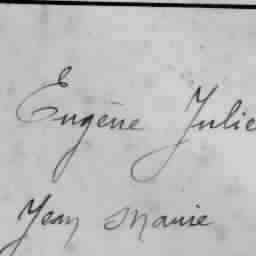 Eugène Julie
Jean Marie